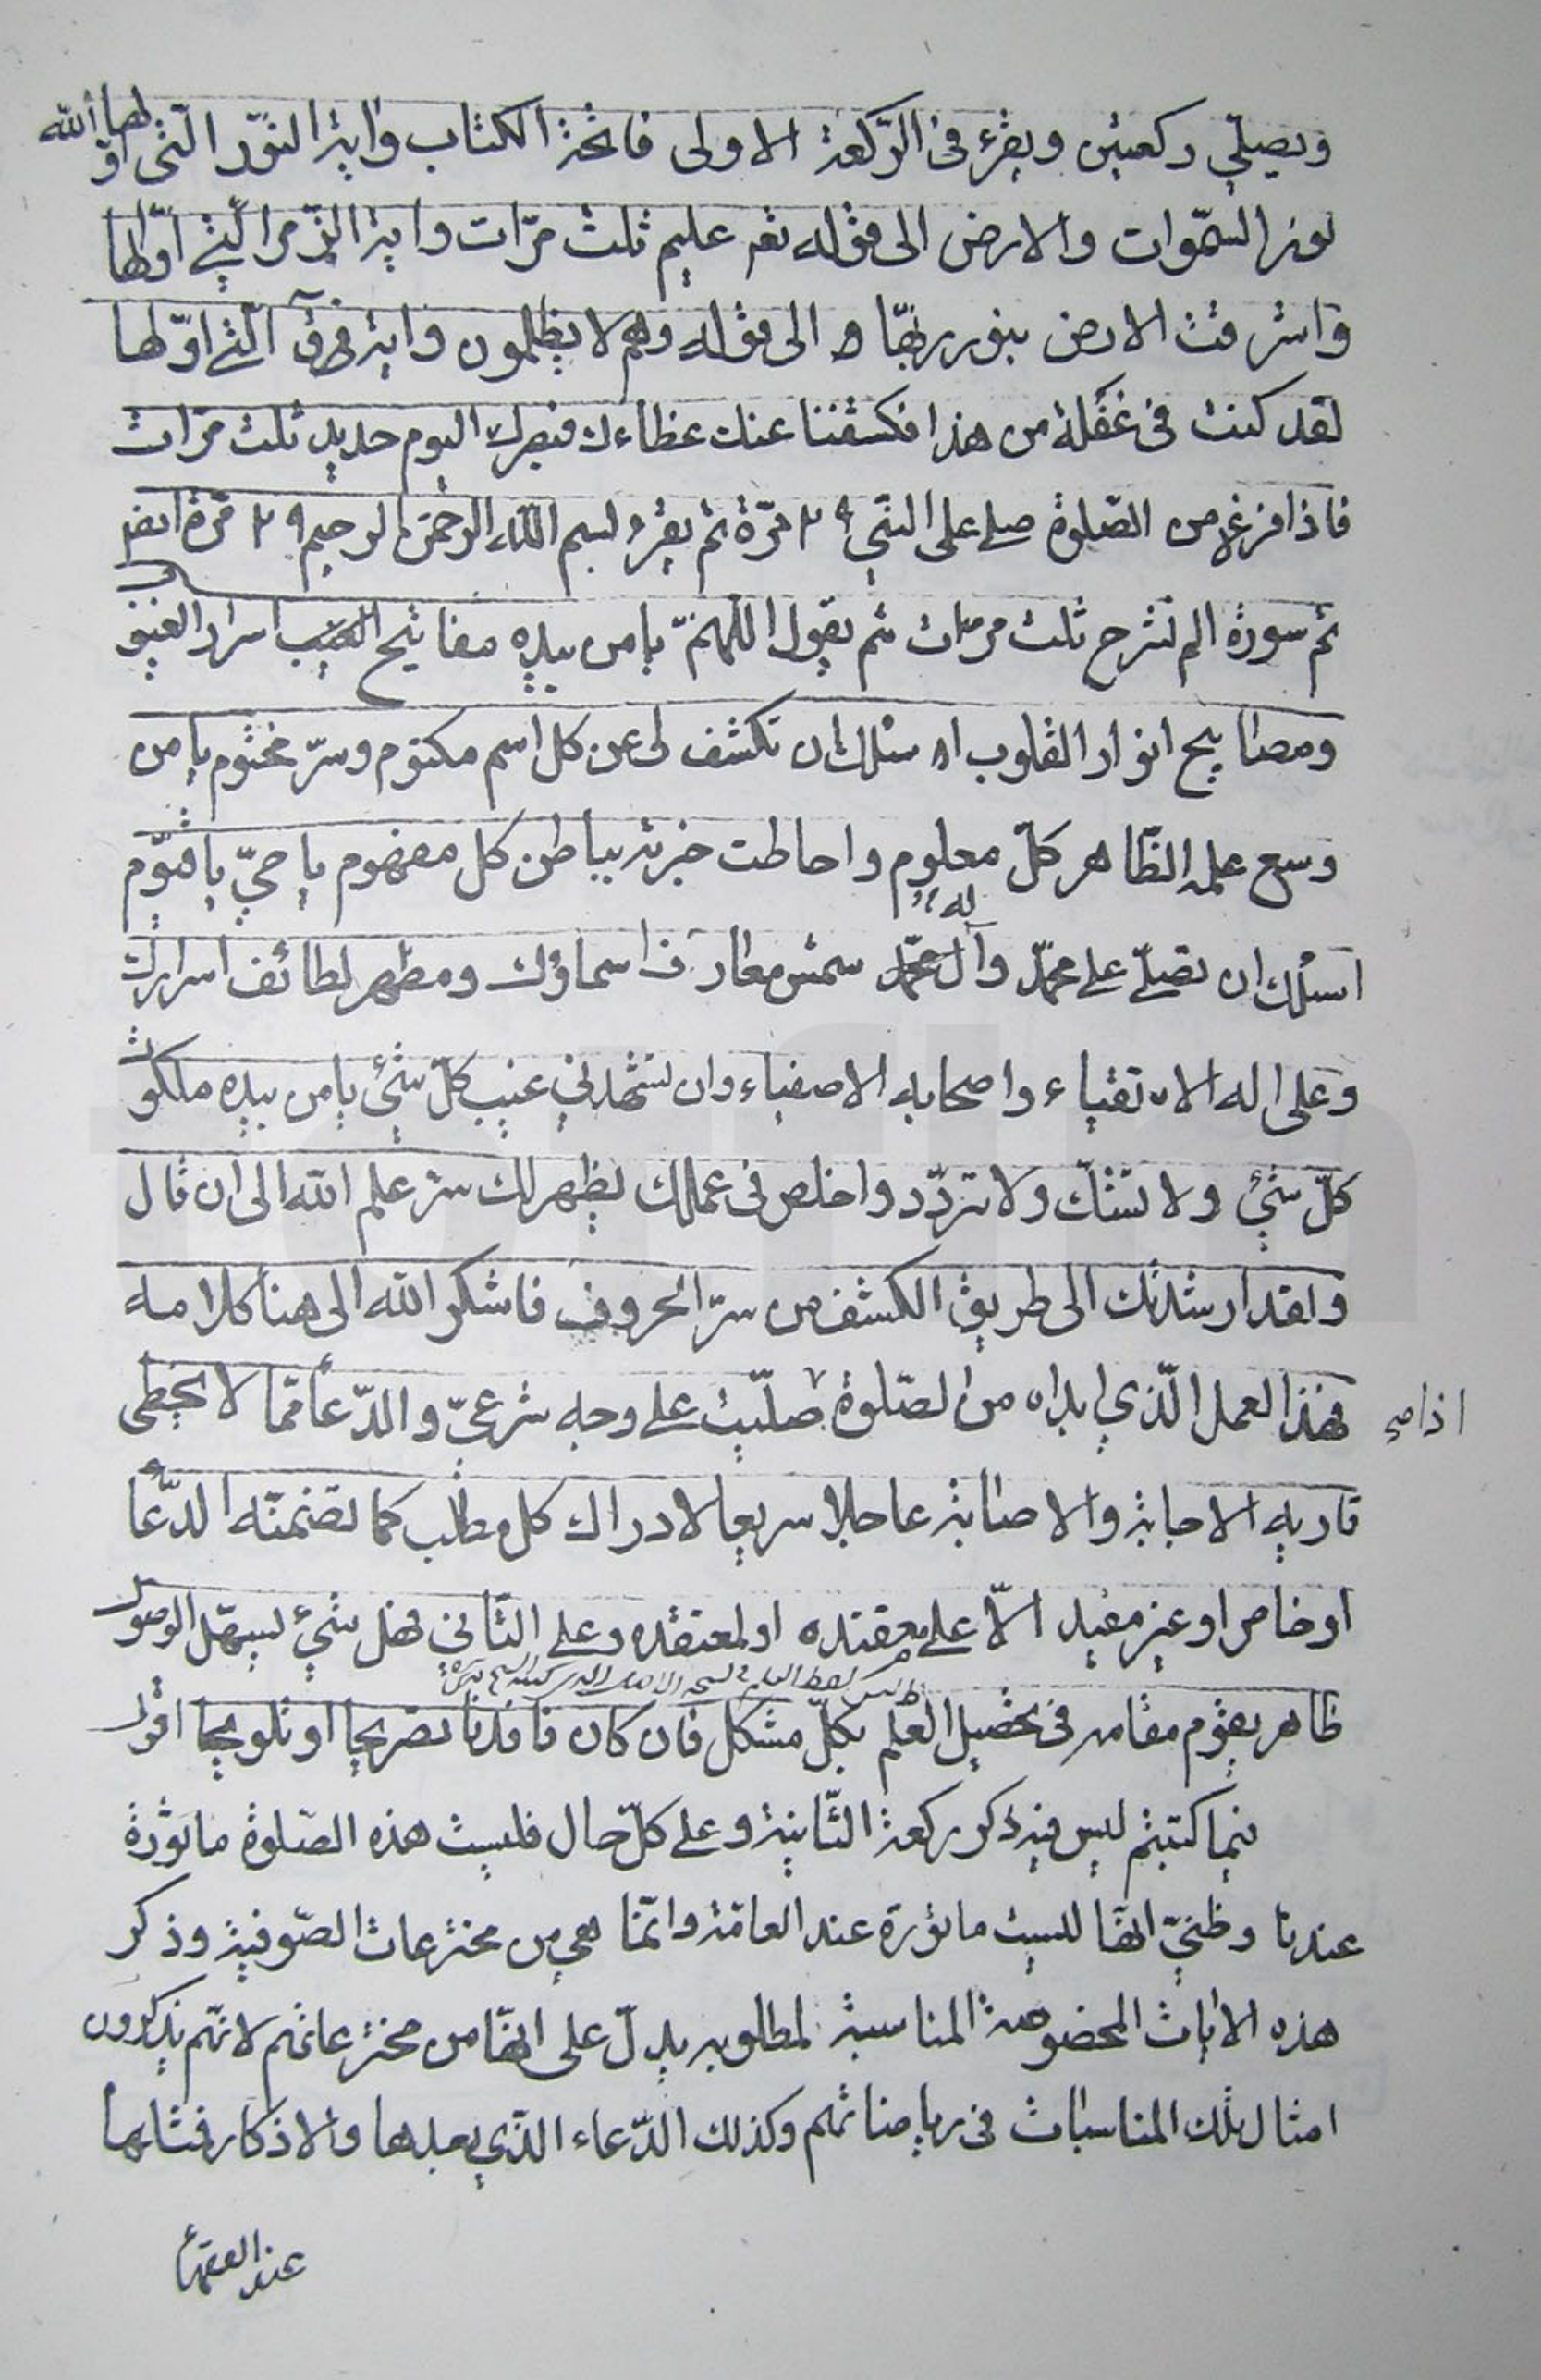 ويصلّي ركعتين ويقرء في الرّكعة الاولى فاتحة الكتاب واية النّور الّتي اوّلها الله
نور السّموات والارض الى قوله تعه عليم ثلث مرّات واية الزّمر الّتي اوّلها
واشرقت الارض بنور ربّها الى قوله وهم لا يظلمون واية ق الّتي اوّلها
لقد كنت في غفلة من هذا فكشفنا عنك غطاءك فبصرك اليوم حديد ثلث مرّات
فاذا فرغ من الصّلوة صلى على النّبي ٢٩ مرّة ثم يقرء بسم الله الرحمن الرحيم ٢٩ مرّة ايضه
ثم سورة الم نشرح ثلث مرّات ثم يقول اللهمّ يا من بيده مفاتيح اسرار الغيوب
ومصابيح انوار القلوب اسئلك ان تكشف لي عن كل اسم مكتوم وسرّ مختوم يا من
وسع علمه الظّاهر كلّ معلوم واحاطت خبرته بباطن كل مفهوم يا حيّ يا قيّوم
اسئلك ان تصلّي على محمّد وآل محمّد آله شمس معارف اسماؤك ومظهر لطائف اسرارك
وعلى اله الاتقياء واصحابه الاصفياء وان تشهدني غيب كلّ شيء يا من بيده ملكوت
كلّ شيء ولا تشكّ ولا تردّد واخلص في عملك يظهر لك سرّ علم الله الى ان قال
ولقد ارشدتك الى طريق الكشف من سرّ الحروف فاشكر الله الى هنا كلامه
فهذا العمل الّذي ابداه من الصّلوة صلّيت على وجه شرعيّ والدّعا ممّا لا يخطى
اذا
قاريه الاجابة والاصابة عاجلا سريعا لادراك كل مطلب كما تضمّنه الدّعا
او خاص او غير مفيد الّا على معتقده او لمعتقده وعلى الثّاني فهل شيء يسهّل الوصول
ظاهر يقوم مقامه في تحصيل العلم بكلّ مشكل فان كان فافدنا تصريحا او تلويحا اقول
فيما كتبتم ليس فيه ذكر ركعة الثّانية وعلى كلّ حال فليست هذه الصّلوة ماثورة
عندنا وظنّي انّها ليست ماثورة عند العامّة وانّما هي من مخترعات الصّوفية وذكر
هذه الايات المخصوصة المناسبة لمطلوبه يدلّ على انّها من مخترعاتهم لانّهم يذكرون
امثال تلك المناسبات في رياضاتهم وكذلك الدّعاء الّذي بعدها والاذكار فتشابها
عند الفقهاء